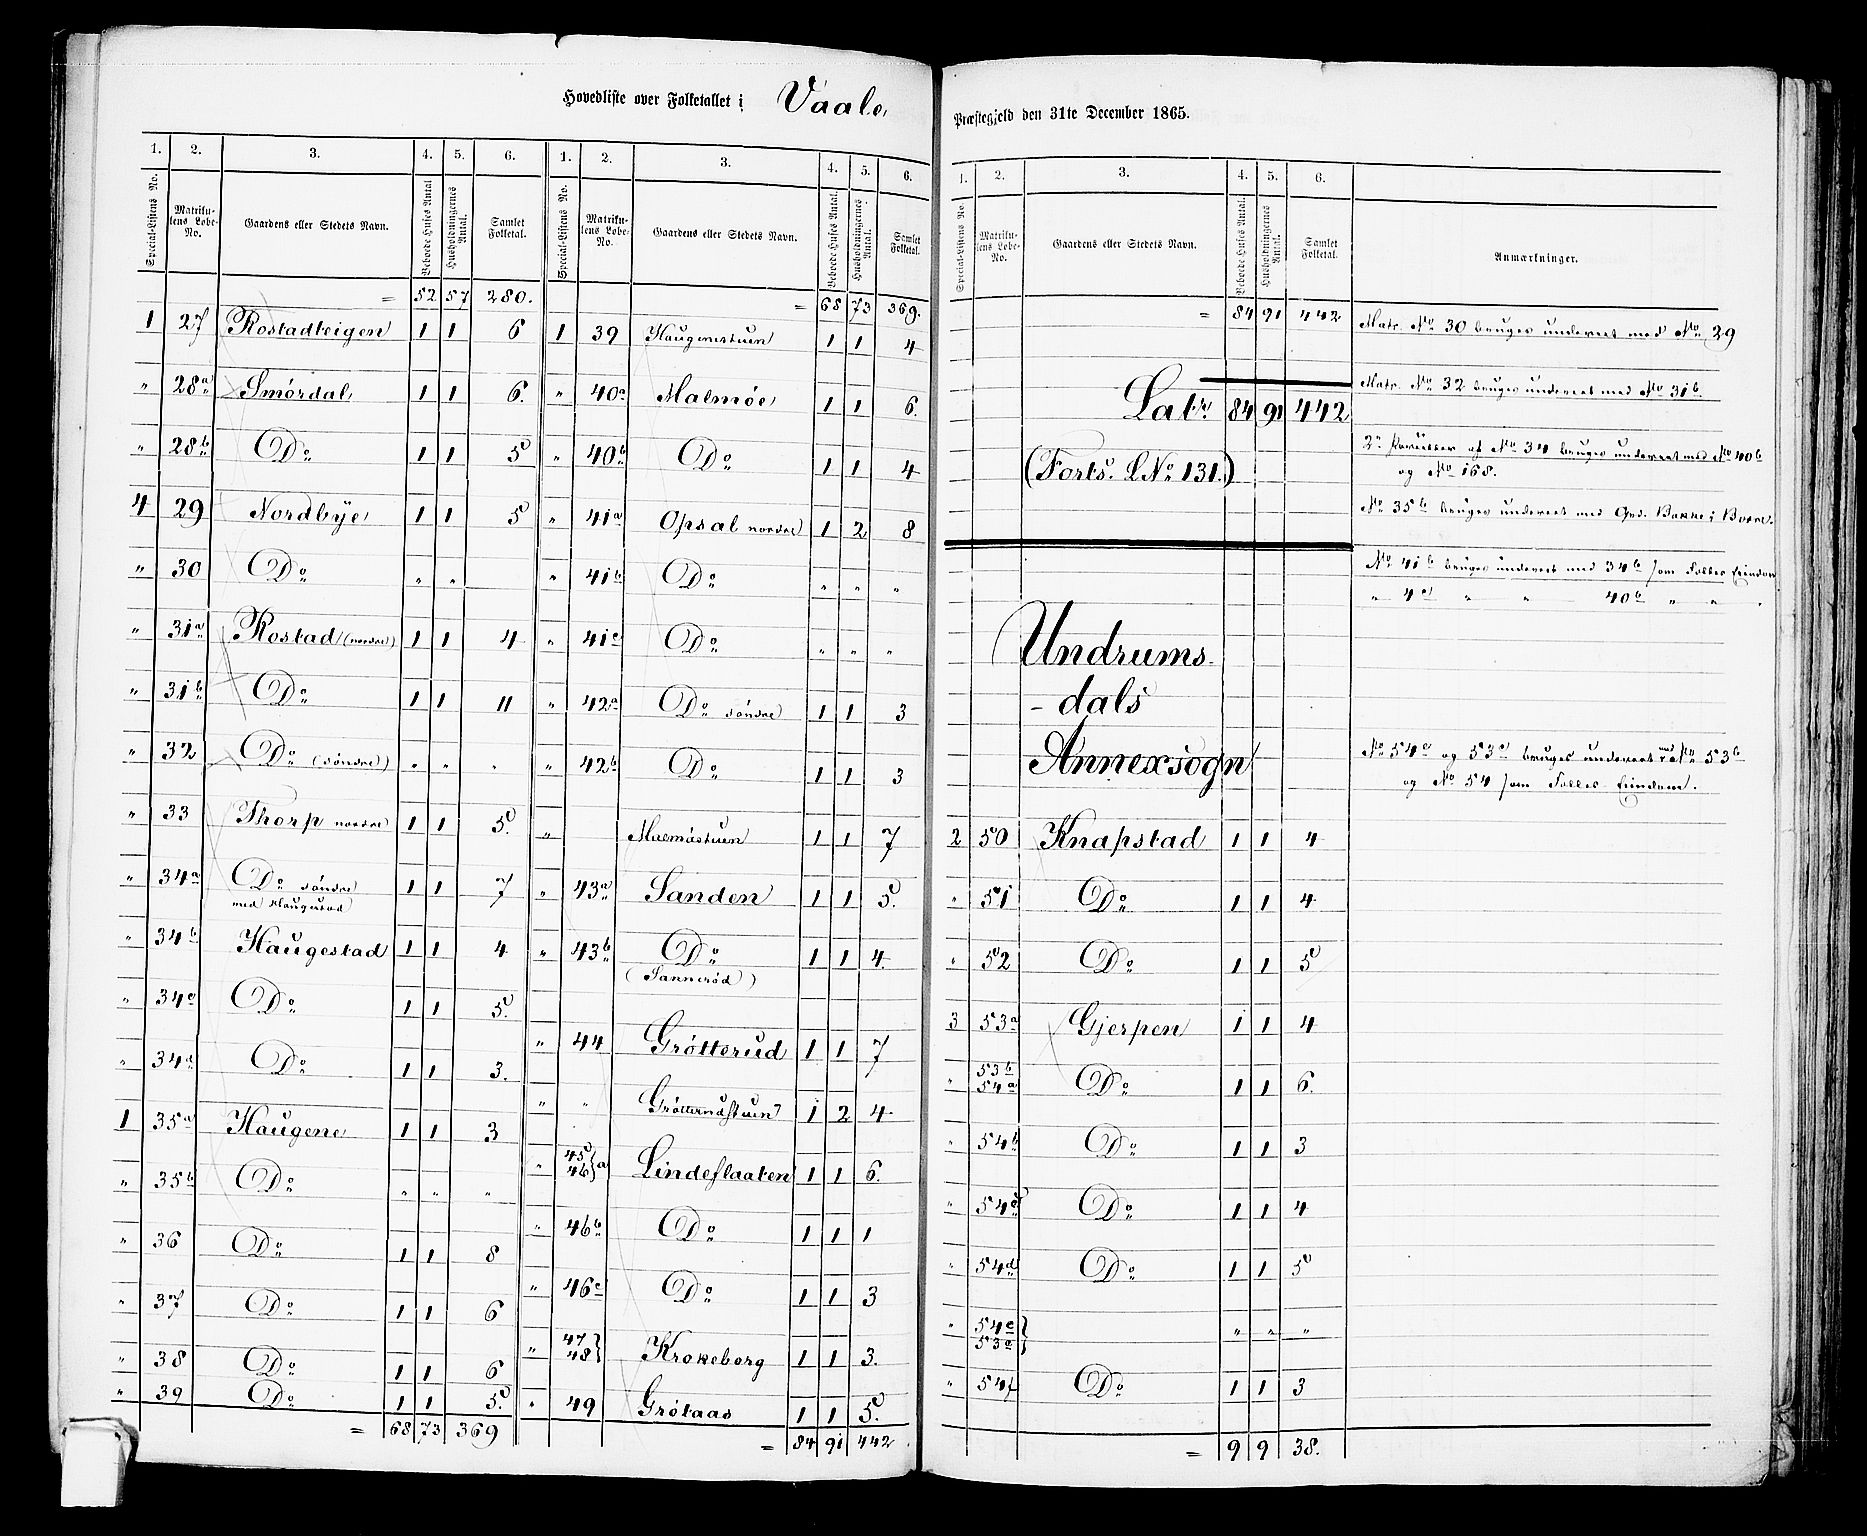 Hovedliste over Folketallet i Vaale Præstegjeld den 31te December 1865.
1. 2. 3. 4. 5. 6.
Special-Listens No. Matrikulens Løbe-No. Gaardens eller Stedets Navn. Beboede Huses Antal Husholdningernes Antal. Samlet Folketal.
= 52 57 280.
1 27 Rostadteigen 1 1 6
" 28a Smørdal 1 1 6.
" 28b Do 1 1 5
4 29 Nordbye 1 1 5
" 30 Do " "
" 31a Rostad (nordre) 1 1 4
" 31b Do 1 1 11
" 32 Do (søndre) " " "
" 33 Thorp nordre 1 1 5.
" 34a Do søndre 1 1 7
med Haugestad
" 34b Haugestad 1 1 4
" 34c Do 1 1 5.
" 34d Do 1 1 3.
1 35a Haugene 1 1 3
" 35b Do " " "
" 36 Do 1 1 8
" 37 Do 1 1 6
" 38 Do 1 1 6
" 39 Do 1 1 5.
= 68 73 369
1. 2. 3. 4. 5. 6.
Special-Listens No. Matrikulens Løbe-No. Gaardens eller Stedets Navn. Beboede Huses Antal. Husholdningernes Antal. Samlet Folketal.
= 68 73 369.
1 39 Haugenestuen 1 1 4
" 40a Malmøe 1 1 6.
" 40b Do 1 1 4
" 41a Opsal nordre 1 2 8
" 41b Do " " "
" 41c Do " " "
" 42a Do søndre 1 1 3
" 42b Do 1 1 3
" Malmøstuen 1 1 7
" 43a Sanden 1 1 5.
" 43b Do 1 1 4.
(Sannerød)
" 44 Grøtterud 1 1 7
" " Grøtterudstuen 1 2 4
" 45 46 } a Lindeflaaten 1 1 6.
" 46b Do 1 1 1
" 46c Do 1 1 3
" 47 48 } Krokeborg 1 1 3.
" 49 Grøtaas 1 1 5.
= 84 91 442.
1. 2. 3. 4. 5. 6.
Special-Listens No. Matrikulens Løbe-No. Gaardens eller Stedets Navn. Beboede Huses Antal. Husholdningernes Antal. Samlet Folketal. Anmærkninger.
= 84 91 442
Matr. No 30 bruges underet med No 29
Matr. No 32 bruges underet med No 31b
Lats 84 91 442
af No 34 bruges underet med No 40b
og No 168.
(Forts. L No 131.)
No 35b bruges underet med Grd. Bakke i Borre.
No 41b bruges underet med 34b som Fælles Eiendom
" 41 " " 40b " " "
Undrums-
-dals
Annexsogn
No 54e og 53c bruges underet med No 53b
og No 54 som Fælles Eiendom.
2 50 Knapstad 1 1 4
" 51 Do 1 1 4
" 52 Do 1 1 5
3 53a Gjerpen 1 1 4
" 53b 54a Do 1 1 6.
" 54b Do 1 1 3
" 54c Do 1 1 4
" 54d Do 1 1 5
" 54e 53c } " " "
" 54f Do 1 1 3
= 9 9 38.